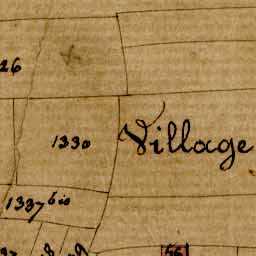 26
1330
Village
1337 bis
56